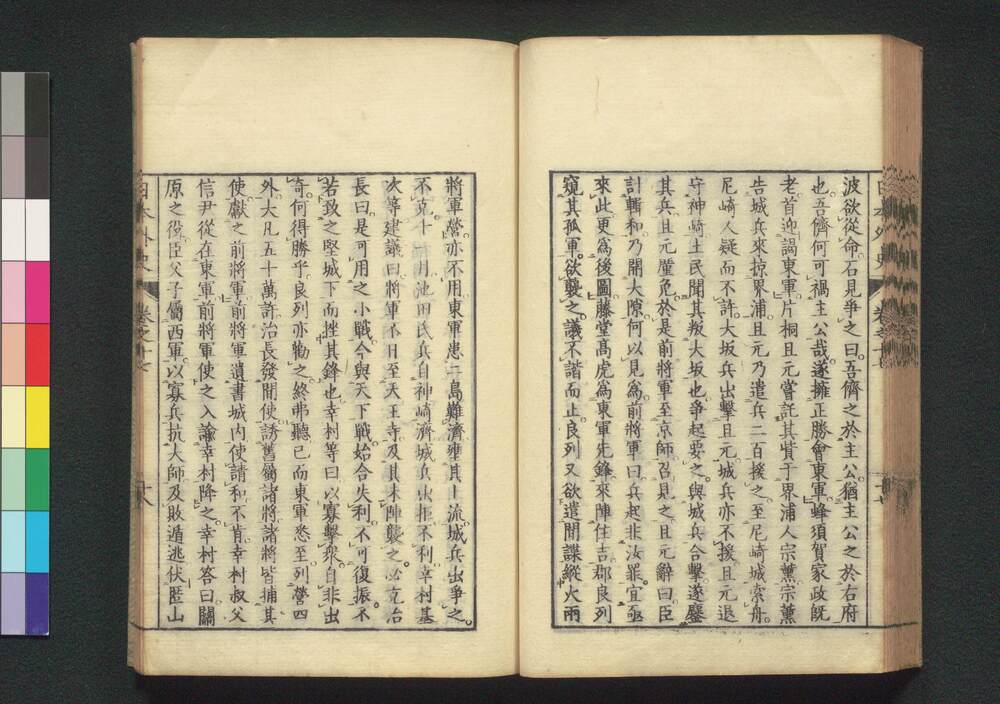 波欲從命石見爭之曰吾儕之於主公猶主公之於右府
也吾儕何可禍主公哉遂擁正勝會東軍蜂須賀家政既
老首迎謁東軍片桐且元嘗託其貲于界浦人宗薰宗薰
告城兵來掠界浦且元乃遣兵二百援之至尼崎城索舟
尼崎人疑而不許大坂兵出擊且元城兵亦不援且元退
守神崎土民聞其叛大坂也爭起要之與城兵合擊遂鏖
其兵且元僅免於是前將軍至京師召見之且元辭曰臣
計輯和乃開大隙何以見為前將軍曰兵起非汝罪宜亟
來此更為後圖藤堂高虎為東軍先鋒來陣住吉郡良列
窺其孤軍欲襲之議不諧而止良列又欲遣間諜縱火兩
將軍營亦不用東軍患二島難濟壅其上流城兵出爭之
不克十一月池田氏兵自神崎濟城兵出拒不利幸村基
次等建議曰將軍不日至天王寺及其未陣襲之必克治
長曰是可用之小戰今與天下戰始合失利不可復振不
若致之堅城下而挫其鋒也幸村等曰以寡擊衆自非出
奇何得勝乎良列亦勸之終弗聽已而東軍悉至列營四
外大凡五十萬許治長發間使誘舊屬諸將諸將皆捕其
使獻之前將軍前將軍遺書城内使請和不肯幸村叔父
信尹從在東軍前將軍使之入諭幸村降之幸村答曰關
原之役臣父子屬西軍以寡兵抗大師及敗遁逃伏匿山
日本外史 卷之十七 十八